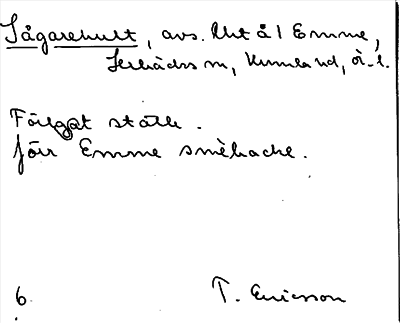 Sågarehult, avs. Uht å 1 Emme,
Lerbäcks sn, Kumla hd, ör. l.
Förgät ställe.
för Emme smèbacke.
6. T. Ericsson